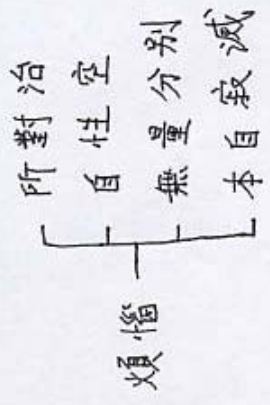 煩惱
所對治
自性空
無量分别
本自寂滅